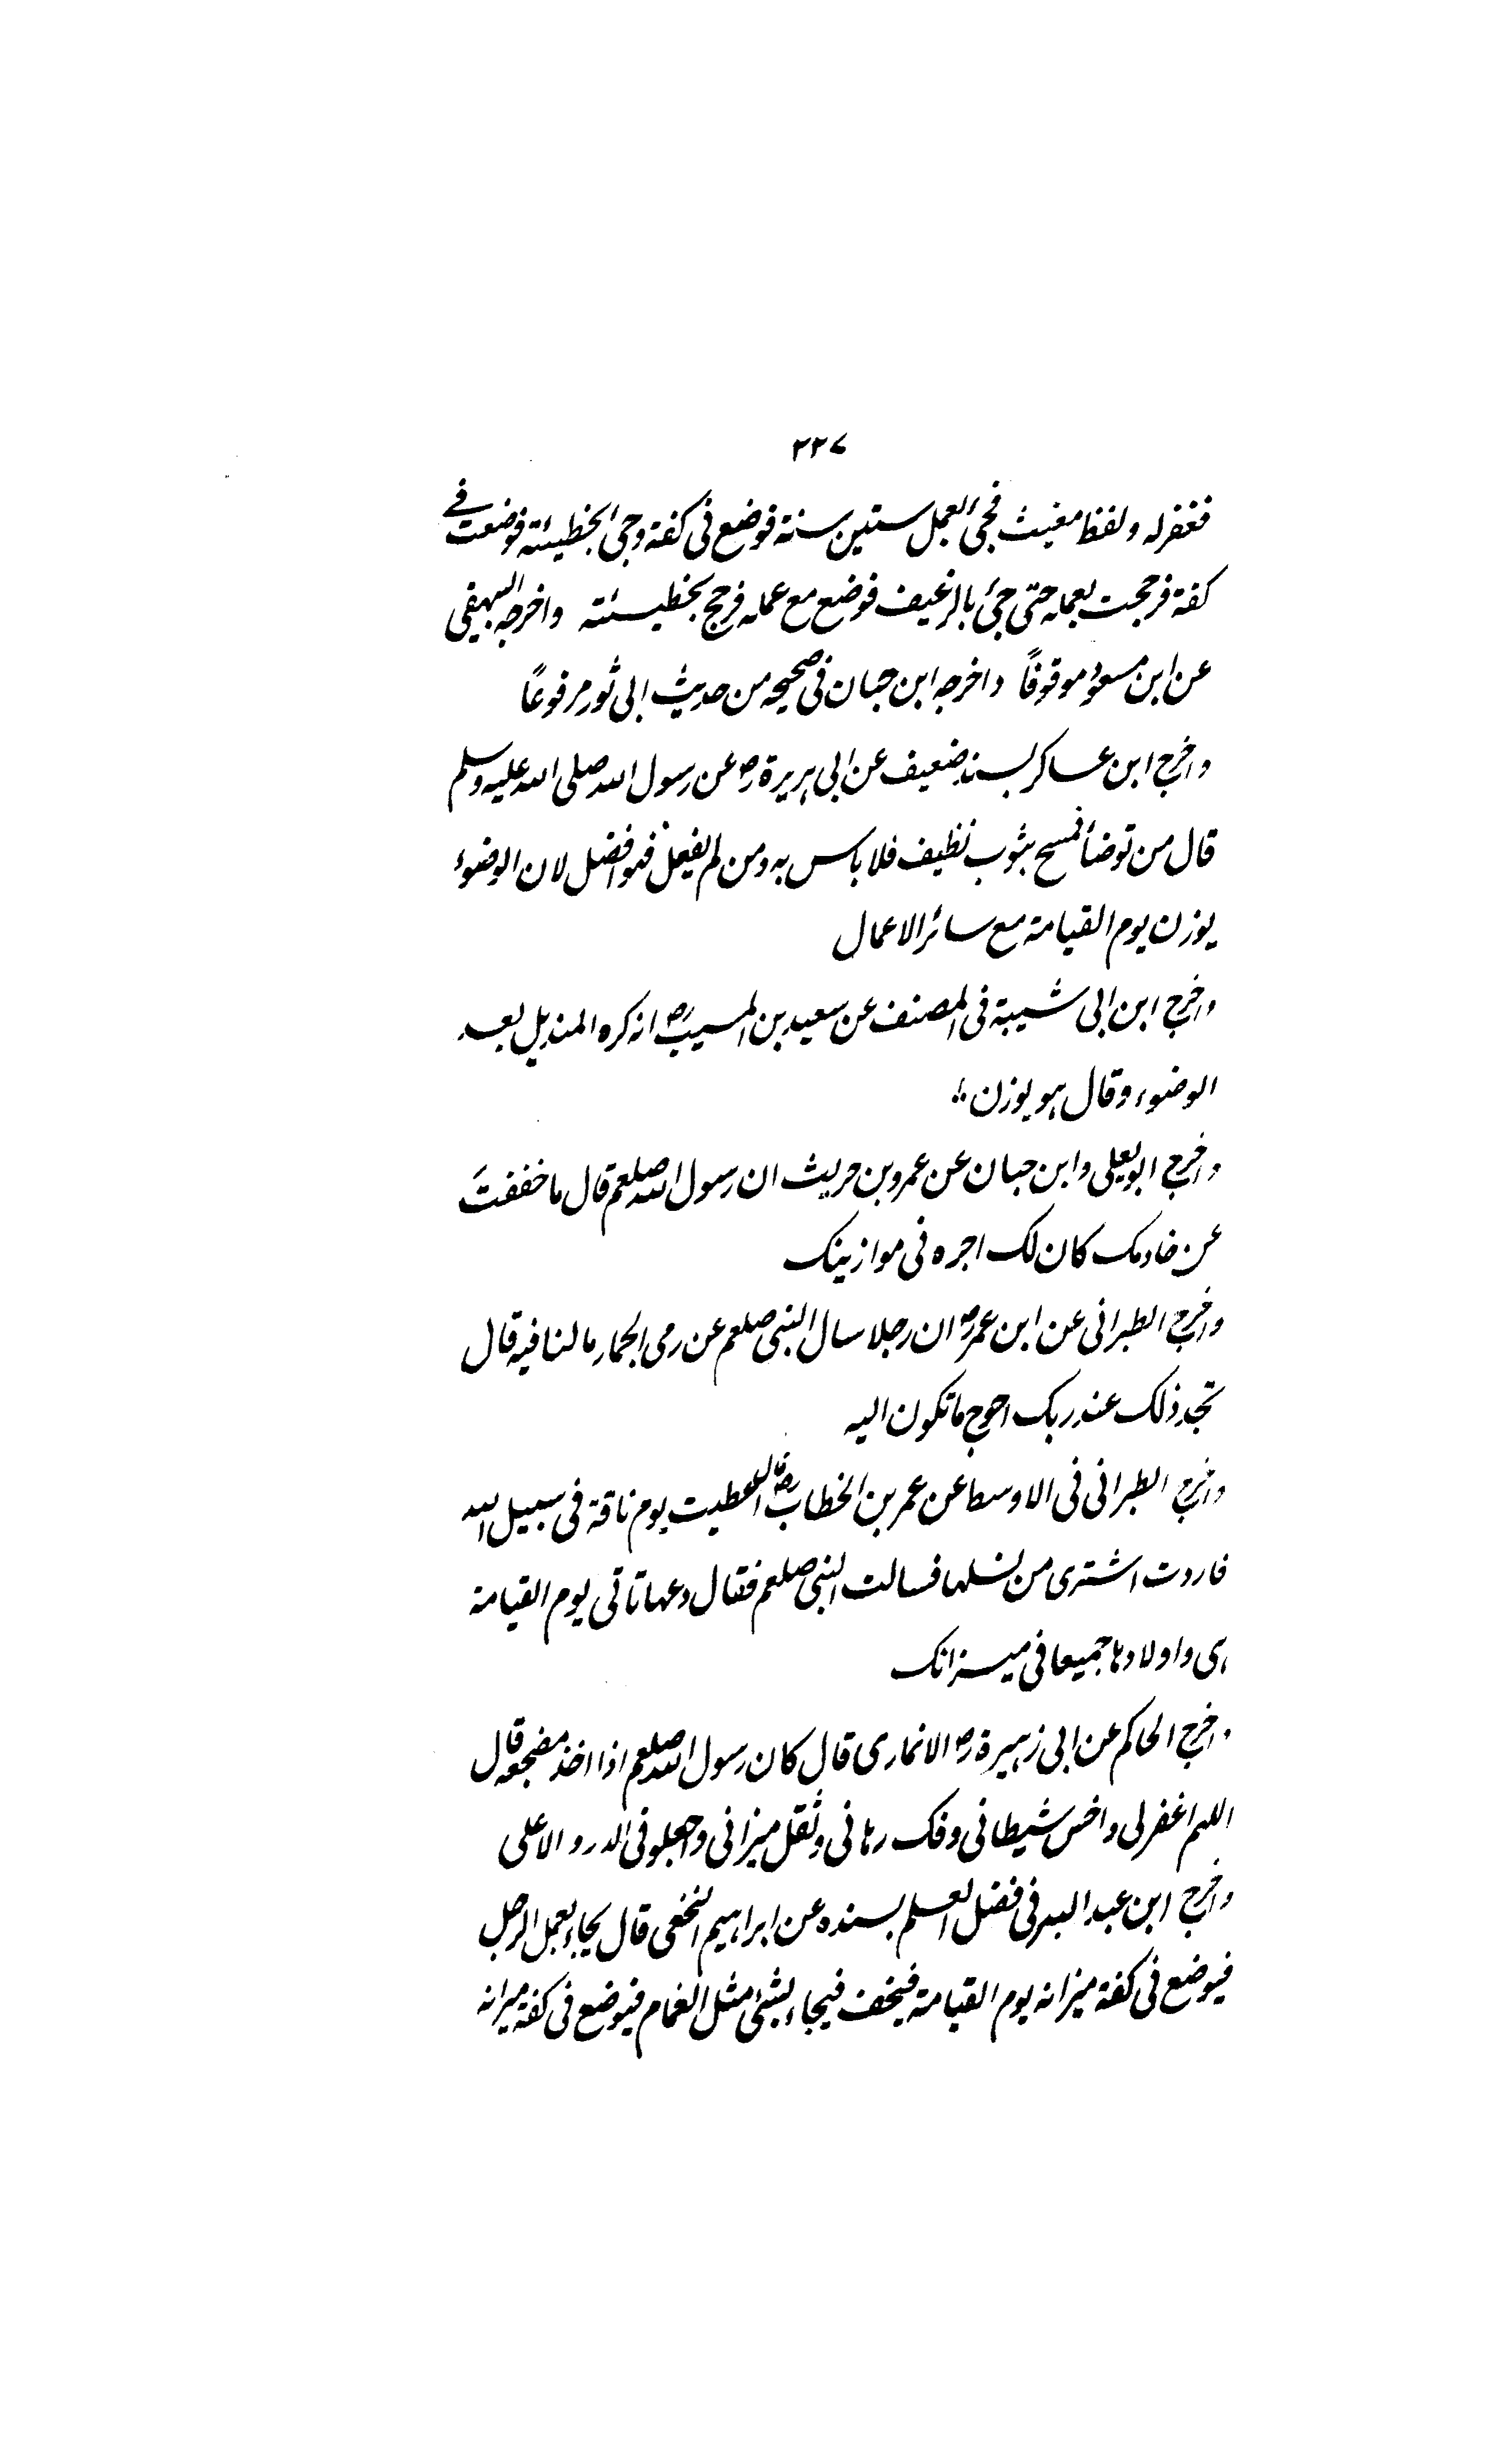 ۲۲۷
فغفرله ولفظ مغیث فجئ بعمل ستین سنة فوضع فی کفة وجئ بخطیئة فوضعت فے
کفة فرجحت بعمله حتی جئ بالرغیف فوضع مع عمله فرجح بخطیئته واخرجه البیهقی
عن ابن مسعودؓ موقوفاً واخرجه ابن حبان فی صحیحه من حدیث ابی ثور مرفوعاً
واخرج ابن عساکر بسند ضعیف عن ابی ہریرة رض عن رسول الله صلی الله علیه وسلم
قال من توضأ فمسح بثوب نظیف فلا باس به ومن لم یفعل فهو افضل لان الوضوء
یوزن یوم القیامة مع سائر الاعمال
واخرج ابن ابی شیبة فی المصنف عن سعید بن المسیبؓ انه کره المندیل بعد
الوضوء وقال ہو یوزن
واخرج ابو یعلی وابن حبان عن عمرو بن حریث ان رسول الله صلعم قال ما خففتَ
عن خادمک کان لک اجره فی موازینک
واخرج الطبرانی عن ابن عمر رض ان رجلا سال النبی صلعم عن رمی الجمار ما لنا فیه قال
تجد ذلک عند ربک احوج ما تکون الیه
واخرج الطبرانی فی الاوسط عن عمر بن الخطاب رض قال اعطیت یوم ناقة فی سبیل الله
فاردت اشتری من نسلها فسالت النبی صلعم فقال دعها تاتی یوم القیامة
ہی واولادہا جمیعا فی میزانک
واخرج الحاکم عن ابی زہیرة رض الانماری قال کان رسول الله صلعم اذا اخذ مضجعه قال
اللهم اغفرلی واخس شیطانی وفک رہانی وثقل میزانی واجعلو فی الدرو الاعلی
واخرج ابن عبد البر فی فضل العلم بسنده عن ابراہیم النخعی قال یجاء بعمل الرجل
فیوضع فی کفة میزانه یوم القیامة فیخف فیجاء بشئ مثل الغمام فیوضع فی کفة میزانه